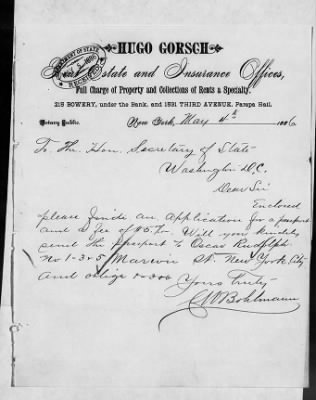 HUGO GORSCH
Real Estate and Insurance Offices,
Full Charge of Property and Collections of Rents a Specialty.
213 BOWERY, under the Bank, and 1531 THIRD AVENUE, Parepa Hall.
DEPARTMENT OF STATE
RECEIVED
Notary Public. New York, May 4th 1886
To The Hon. Secretary of State
Washington D.C.
Dear Sir
Enclosed
please finde an Application for a passport
and a fee of $5. Will you kindely
send the passport to Oscar Rudolph
No 1-3 & 5 Marion St. New York City
and oblige
Yours Truly
Bohlmann